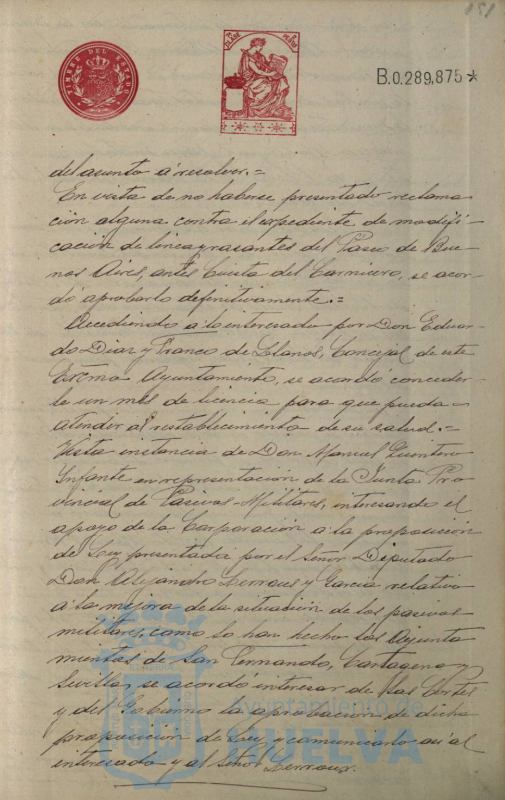 151
TIMBRE DEL ESTADO
B.0.289,875*
del asunto a resolver.=
En vista de no haberse presentado reclama
ción alguna contra el expediente de modifi-
cación de líneas y rasantes del Paseo de Bue
nos Aires, antes Cuesta del Carnicero, se acor-
dó aprobarlo definitivamente.=
Accediendo a lo interesado por Don Eduar-
do Diaz y Franco de Llanos, Concejal de este
Excmo. Ayuntamiento, se acordó conceder-
le un mes de licencia para que pueda
atender al restablecimiento de su salud.=
Vista instancia de Don Manuel Quintero
Infante en representación de la Junta Pro
vincial de Pasivos-Militares, interesando el
apoyo de la Corporación a la proposición
de Ley presentada por el Señor Diputado
Don Alejandro Lerroux y Garcia relativo
a la mejora de la situación de los pasivos
militares, como lo han hecho los Ayunta
mientos de San Fernando, Cartagena y
Sevilla, se acordó interesar de las Cortes
y del Gobierno la aprobación de dicha
proposición de Ley, y comunicarlo así al
interesado y al Señor Lerroux.
Ayuntamiento de
HUELVA